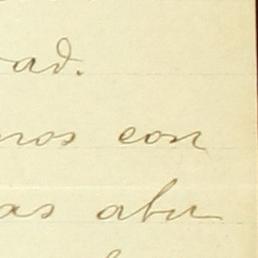 ad.
nos con
as abu